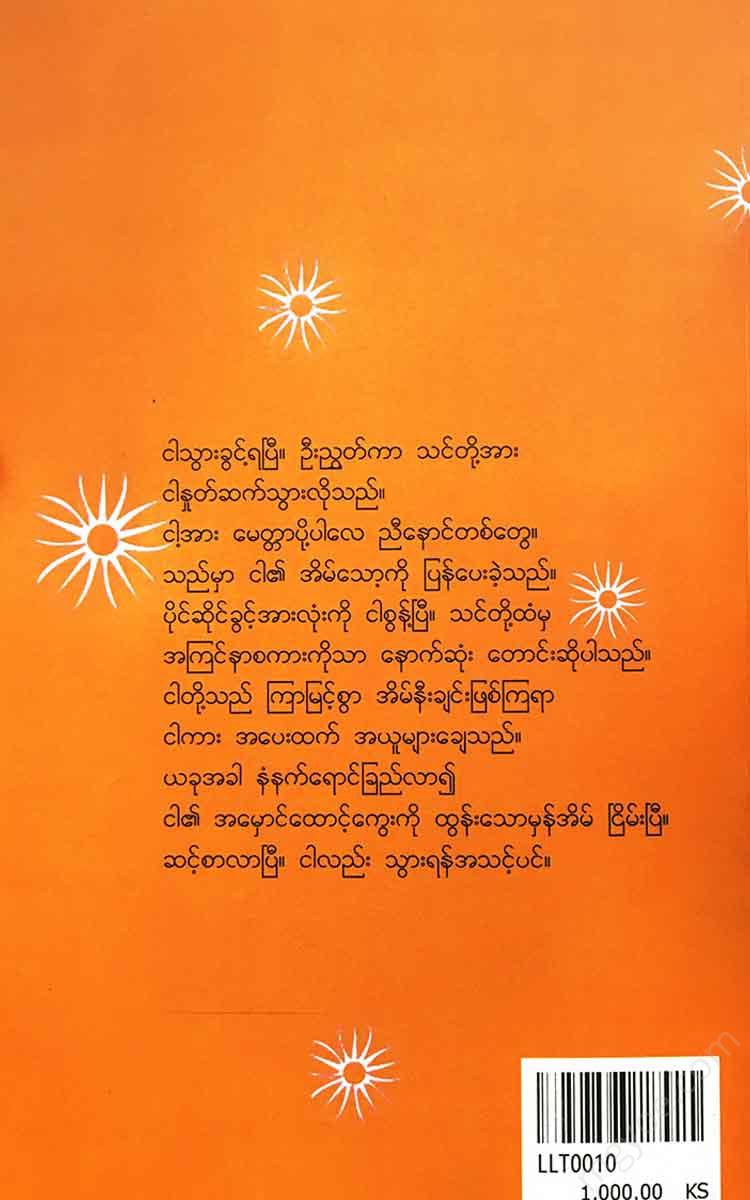 ငါသွားခွင့်ရပြီ။ ဦးညွှတ်ကာ သင်တို့အား
ငါနှုတ်ဆက်သွားလိုသည်။
ငါ့အား မေတ္တာပို့ပါလေ ညီနောင်တစ်တွေ။
သည်မှာ ငါ၏ အိမ်သော့ကို ပြန်ပေးခဲ့သည်။
ပိုင်ဆိုင်ခွင့်အားလုံးကို ငါစွန့်ပြီ။ သင်တို့ထံမှ
အကြင်နာစကားကိုသာ နောက်ဆုံး တောင်းဆိုပါသည်။
ငါတို့သည် ကြာမြင့်စွာ အိမ်နီးချင်းဖြစ်ကြရာ
ငါကား အပေးထက် အယူများချေသည်။
ယခုအခါ နံနက်ရောင်ခြည်လာ၍
ငါ၏ အမှောင်ထောင့်ကွေးကို ထွန်းသောမှန်အိမ် ငြိမ်းပြီ။
ဆင့်စာလာပြီ။ ငါလည်း သွားရန်အသင့်ပင်။
LLT0010
1,000.00 KS